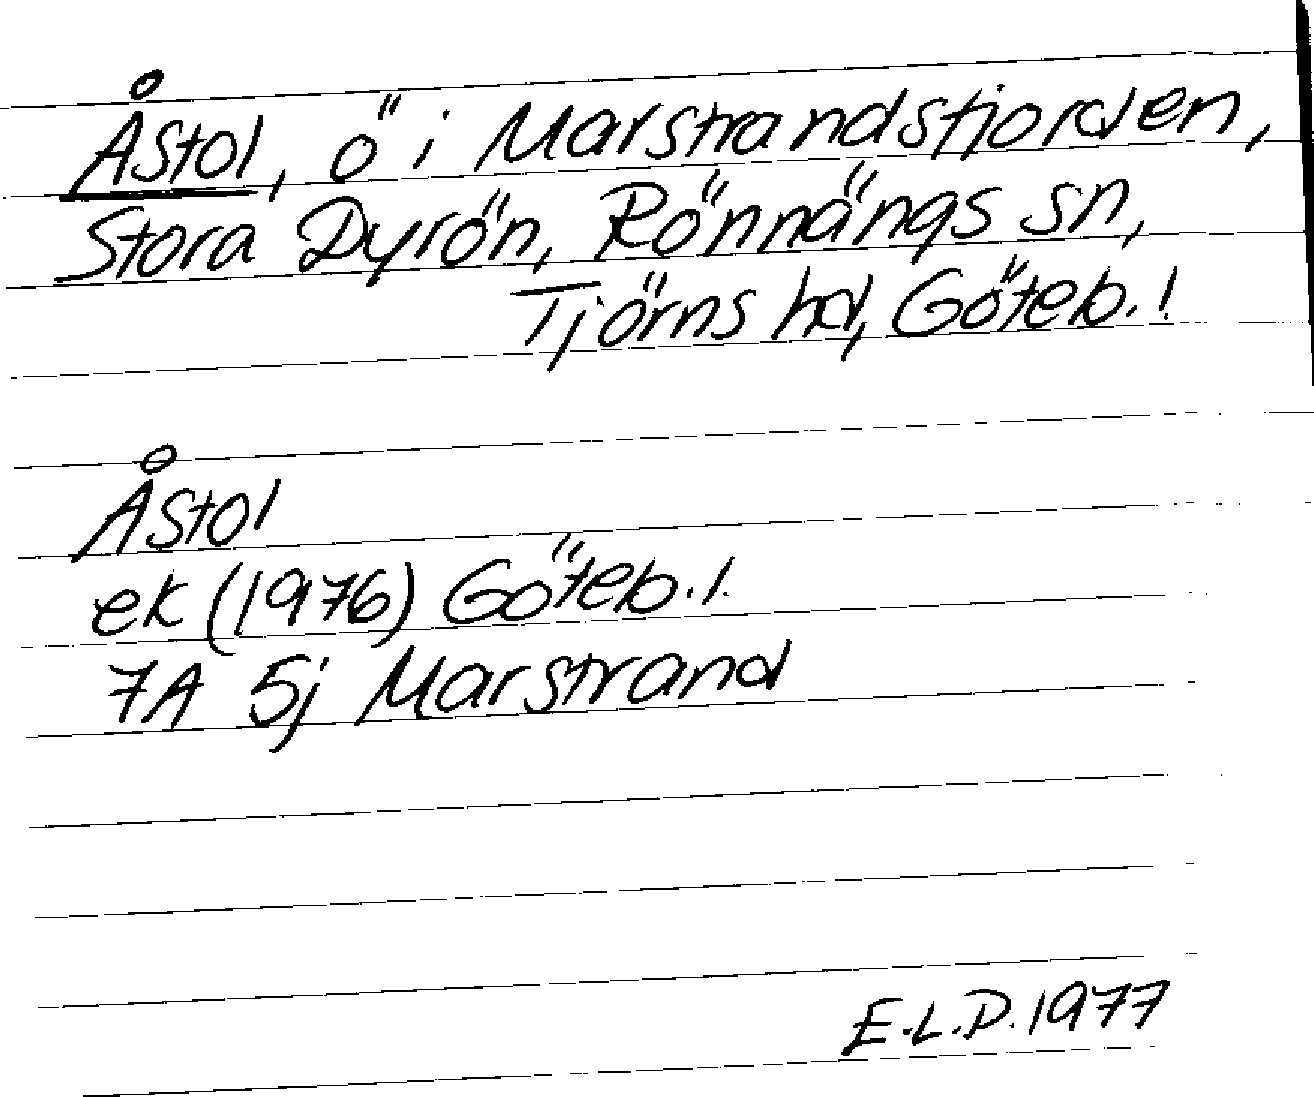 Åstol, ö i Marstrandsfjorden,
Stora Dyrön, Rönnängs sn,
Tjörns hd, Göteb. l
Åstol
ek (1976) Göteb. l.
7A 5j Marstrand
E.L.D. 1977